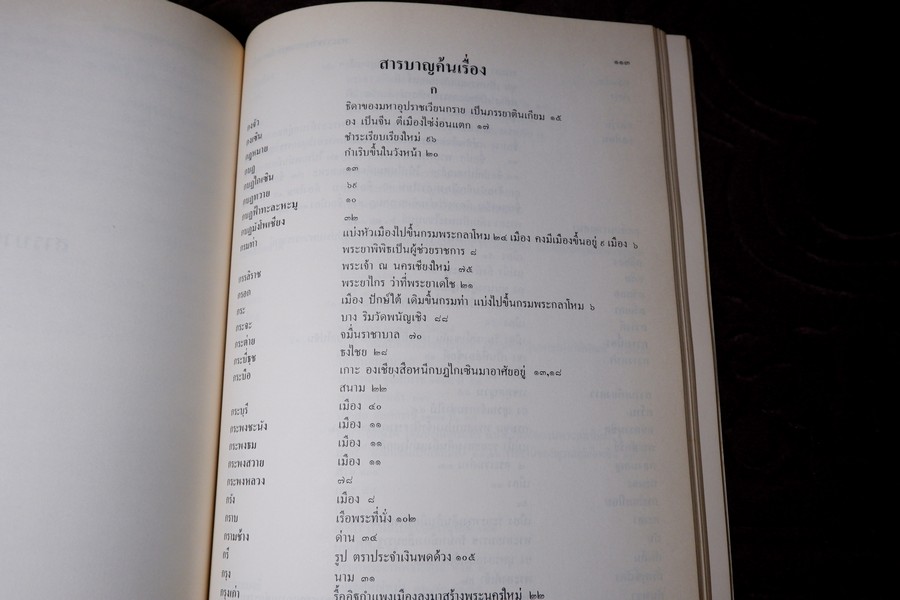 สารบาญค้นเรื่อง
๑๑๓
ก
กงจ๋า ธิดาของมหาอุปราชเวียนกราย เป็นภรรยาตินเกียม ๑๕
กงเซิน อง เป็นจีน ตีเมืองไซ่ง่อนแตก ๑๗
กฎหมาย ชำระเรียบเรียงใหม่ ๙๖
กบฏ กำเริบขึ้นในวังหน้า ๒๐
กบฏไกเซิน ๑๓
กบฏทวาย ๖๙
กบฏฟ้าทะละหะมู ๑๐
กบฏมังโพเชียง ๓๒
กรมท่า แบ่งหัวเมืองไปขึ้นกรมพระกลาโหม ๒๔ เมือง คงมีเมืองขึ้นอยู่ ๙ เมือง ๖
พระยาพิพิธเป็นผู้ช่วยราชการ ๘
กรรลิราช พระเจ้า ณ นครเชียงใหม่ ๗๕
กรอด พระยาไกร ว่าที่พระยาเดโช ๒๑
กระ เมือง ปักษ์ใต้ เดิมขึ้นกรมท่า แบ่งไปขึ้นกรมพระกลาโหม ๖
กระจะ บาง ริมวัดพนัญเชิง ๘๘
กระต่าย จมื่นราชาบาล ๗๐
กระบี่ธุช ธงไชย ๒๘
กระบือ เกาะ องเชียงสือหนีกบฏไกเซินมาอาศัยอยู่ ๑๓,๑๘
สนาม ๒๒
กระบุรี เมือง ๔๐
กระพงชะนัง เมือง ๑๑
กระพงธม เมือง ๑๑
กระพงสวาย เมือง ๑๑
กระพงหลวง ๗๘
กรัง เมือง ๘
กราบ เรือพระที่นั่ง ๑๐๒
กรามช้าง ด่าน ๓๔
กรี รูป ตราประจำเงินพดด้วง ๑๐๕
กรุง นาม ๓๑
กรุงเก่า รื้ออิฐกำแพงเมืองลงมาสร้างพระนครใหม่ ๒๒